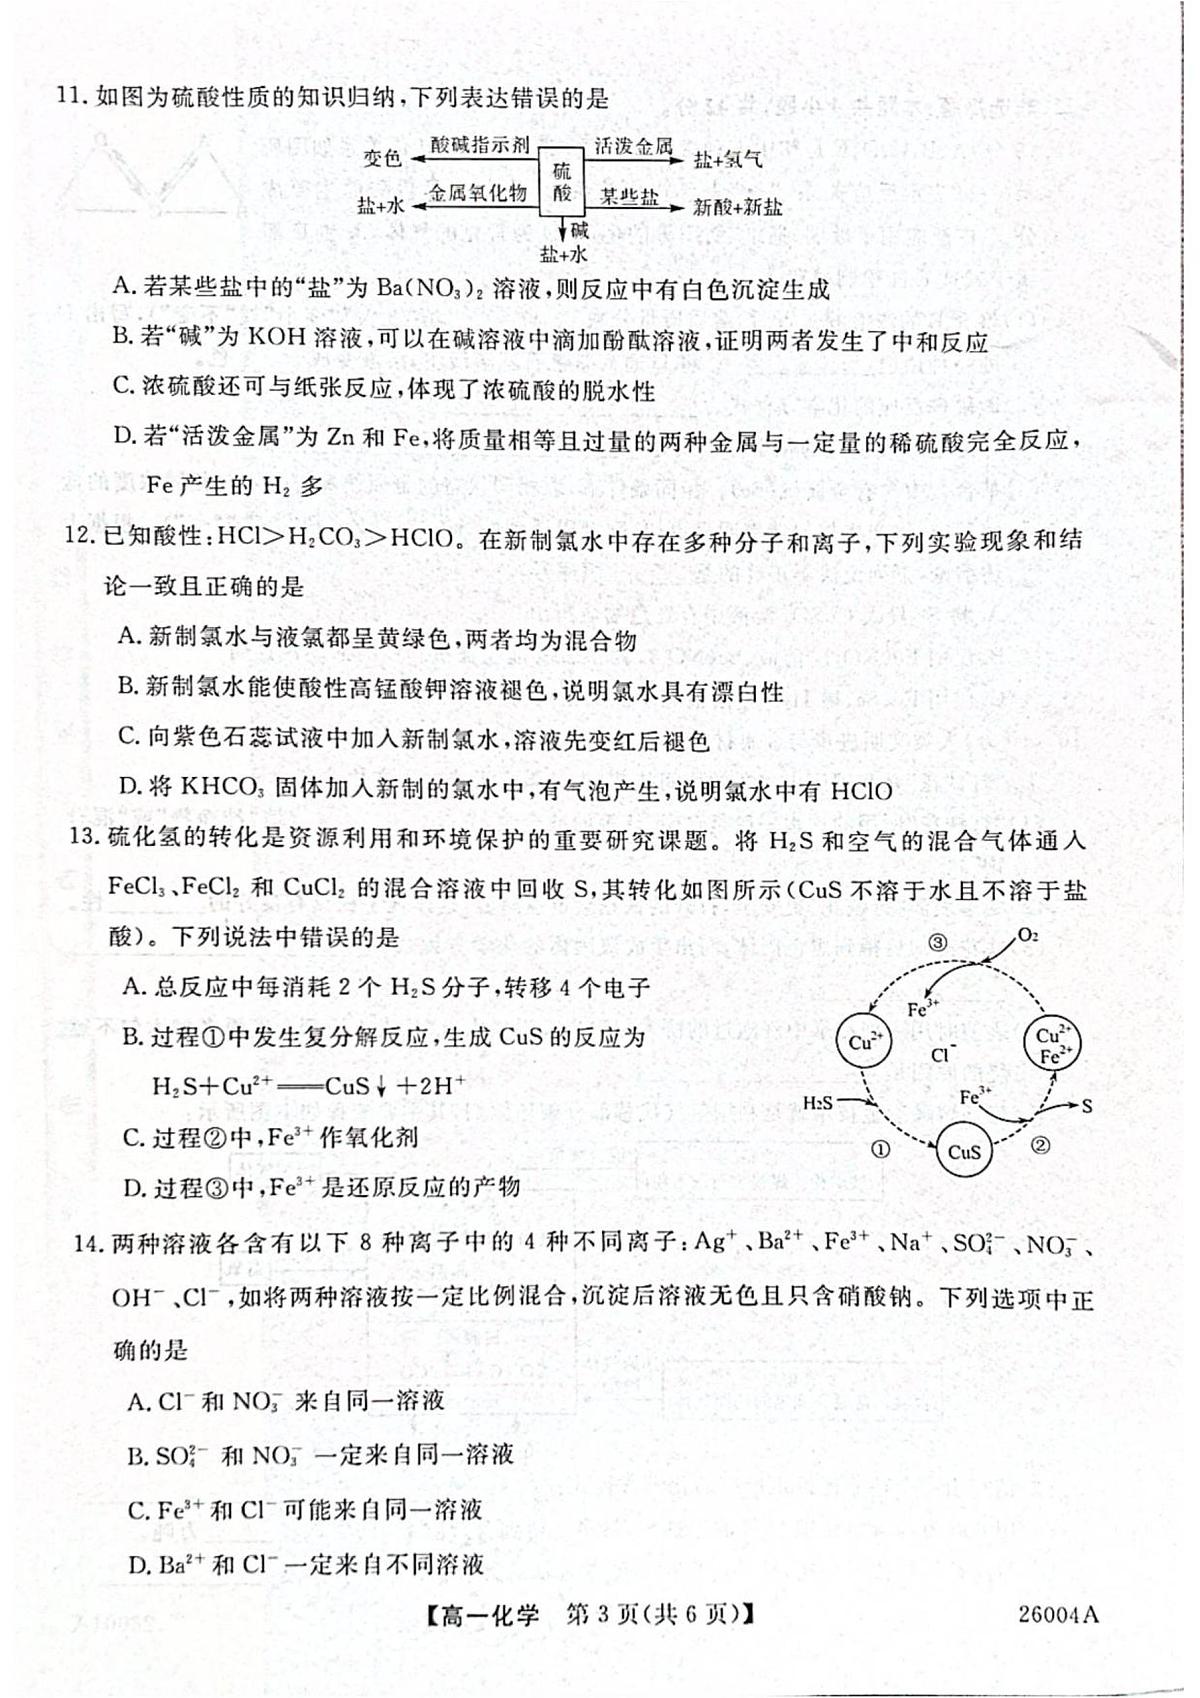 11. 如图为硫酸性质的知识归纳,下列表达错误的是
变色 酸碱指示剂 硫酸 活泼金属 盐+氢气
盐+水 金属氧化物 某些盐 新酸+新盐
碱
盐+水
A. 若某些盐中的“盐”为 Ba(NO₃)₂ 溶液,则反应中有白色沉淀生成
B. 若“碱”为 KOH 溶液,可以在碱溶液中滴加酚酞溶液,证明两者发生了中和反应
C. 浓硫酸还可与纸张反应,体现了浓硫酸的脱水性
D. 若“活泼金属”为 Zn 和 Fe,将质量相等且过量的两种金属与一定量的稀硫酸完全反应,
Fe 产生的 H₂ 多
12. 已知酸性:HCl>H₂CO₃>HClO。在新制氯水中存在多种分子和离子,下列实验现象和结
论一致且正确的是
A. 新制氯水与液氯都呈黄绿色,两者均为混合物
B. 新制氯水能使酸性高锰酸钾溶液褪色,说明氯水具有漂白性
C. 向紫色石蕊试液中加入新制氯水,溶液先变红后褪色
D. 将 KHCO₃ 固体加入新制的氯水中,有气泡产生,说明氯水中有 HClO
13. 硫化氢的转化是资源利用和环境保护的重要研究课题。将 H₂S 和空气的混合气体通入
FeCl₃、FeCl₂ 和 CuCl₂ 的混合溶液中回收 S,其转化如图所示(CuS 不溶于水且不溶于盐
酸)。下列说法中错误的是
A. 总反应中每消耗 2 个 H₂S 分子,转移 4 个电子
B. 过程①中发生复分解反应,生成 CuS 的反应为
H₂S+Cu²⁺══CuS↓+2H⁺
C. 过程②中,Fe³⁺ 作氧化剂
D. 过程③中,Fe³⁺ 是还原反应的产物
③ O₂
Fe³⁺
Cu²⁺ Cl⁻ Cu²⁺ Fe²⁺
H₂S Fe³⁺ S
① CuS ②
14. 两种溶液各含有以下 8 种离子中的 4 种不同离子:Ag⁺、Ba²⁺、Fe³⁺、Na⁺、SO₄²⁻、NO₃⁻、
OH⁻、Cl⁻,如将两种溶液按一定比例混合,沉淀后溶液无色且只含硝酸钠。下列选项中正
确的是
A. Cl⁻ 和 NO₃⁻ 来自同一溶液
B. SO₄²⁻ 和 NO₃⁻ 一定来自同一溶液
C. Fe³⁺ 和 Cl⁻ 可能来自同一溶液
D. Ba²⁺ 和 Cl⁻ 一定来自不同溶液
【高一化学 第 3 页(共 6 页)】 26004A